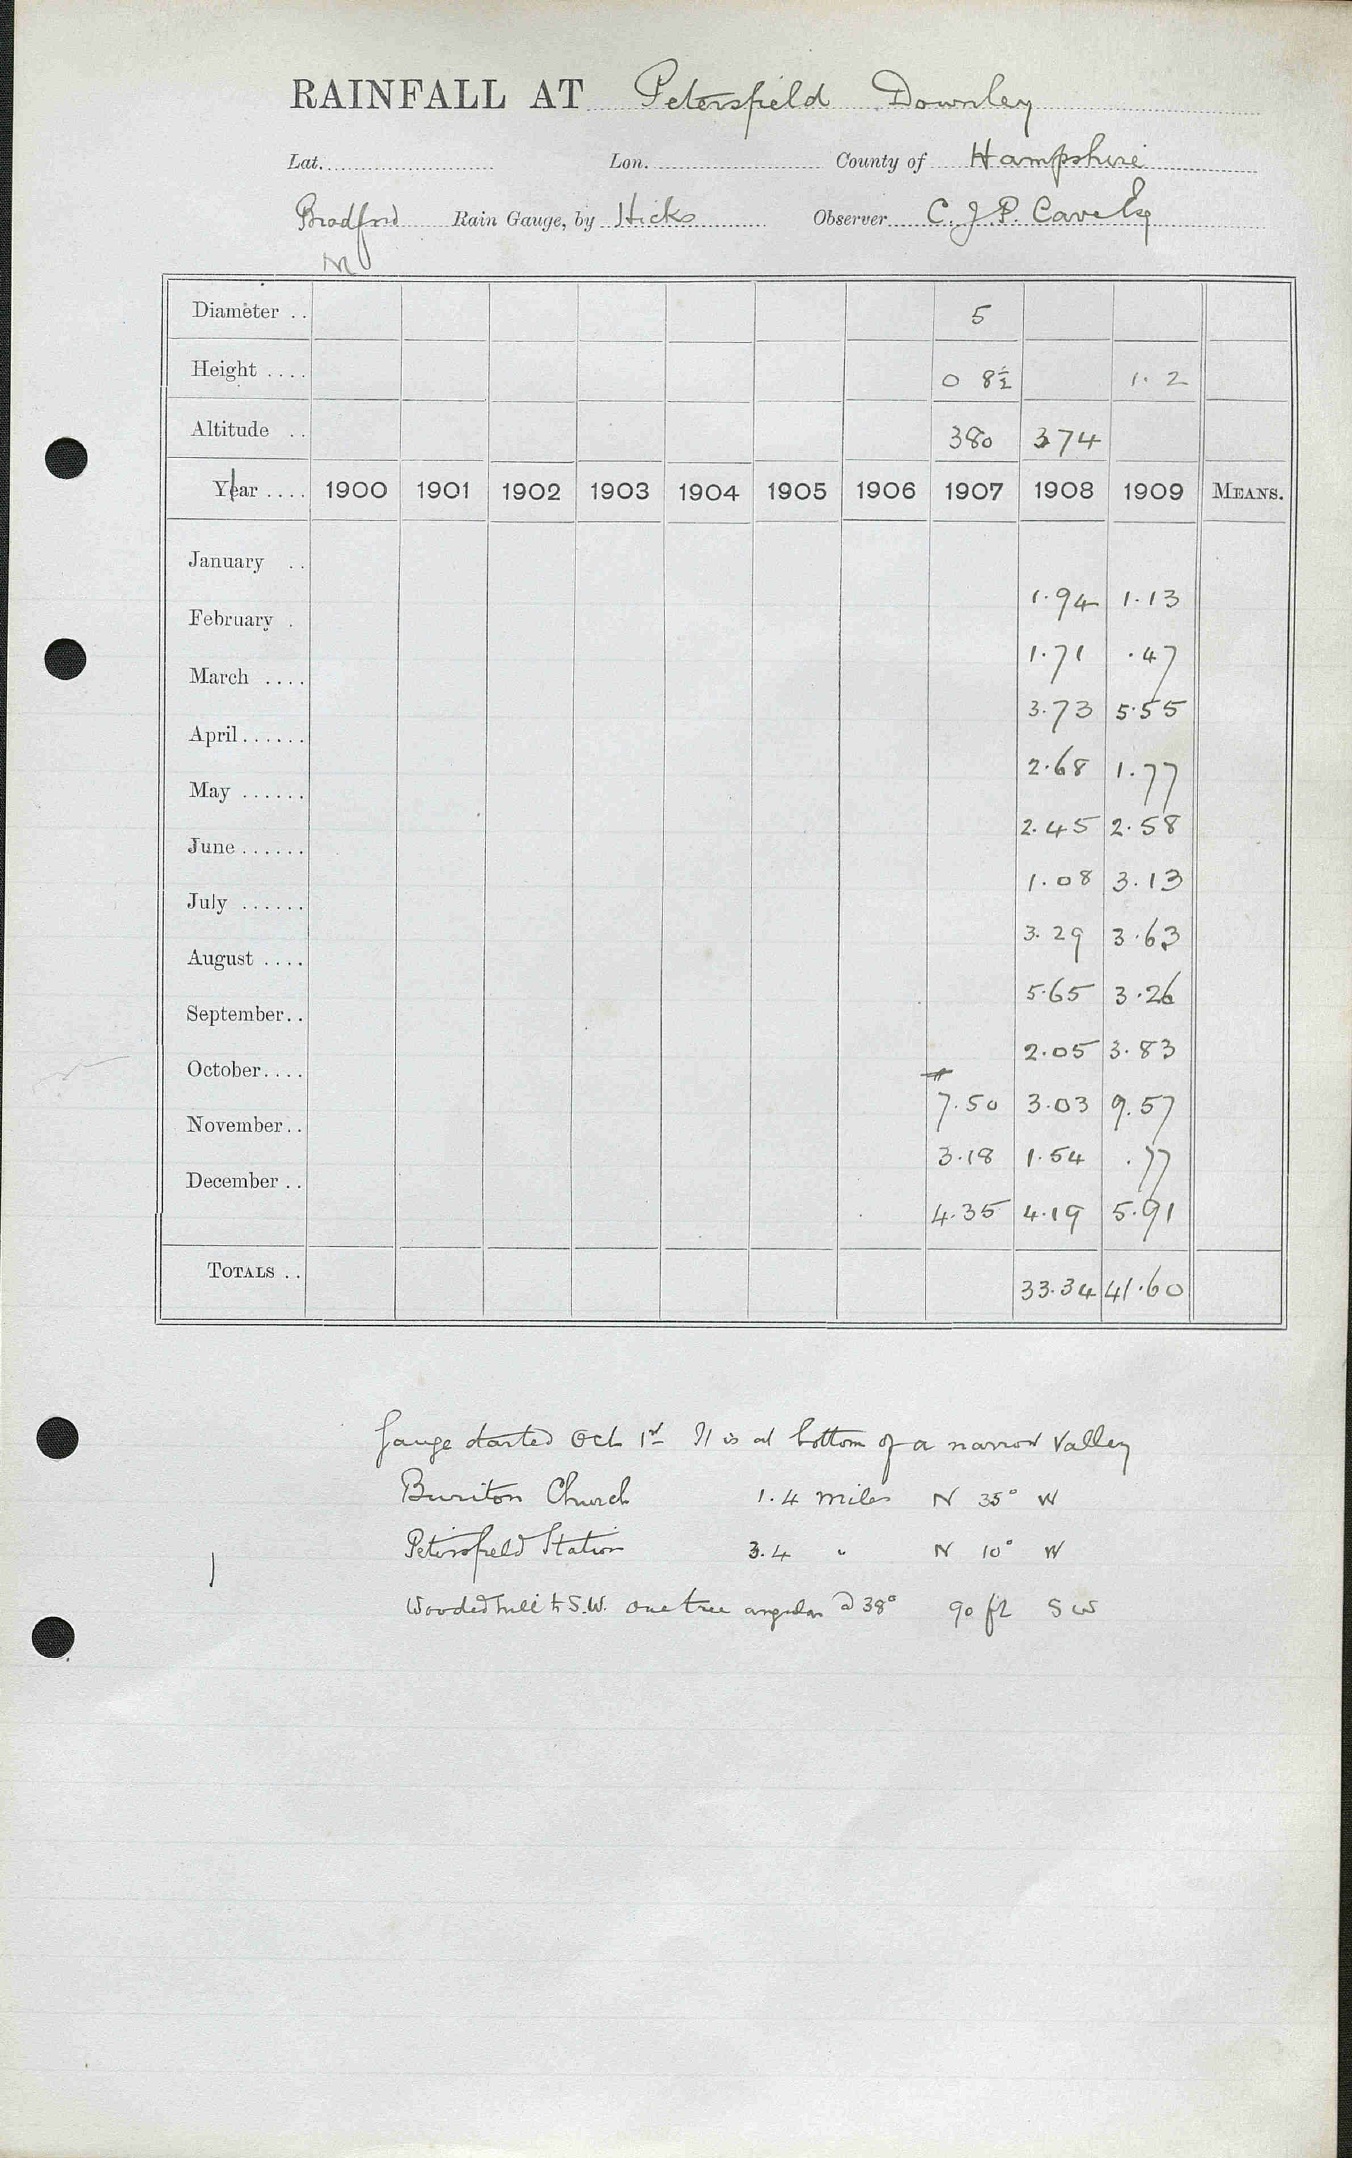 RAINFALL AT Petersfield Downley
Lat. Lon. County of Hampshire
Bradford Rain Gauge, by Hicks Observer C. J. P. Cave Esq
M
Diameter .. 5
Height .... 0 8½ 1. 2
Altitude .. 380 374
Year .... 1900 1901 1902 1903 1904 1905 1906 1907 1908 1909 MEANS.
January .. 1.94 1.13
February . 1.71 .47
March .... 3.73 5.55
April...... 2.68 1.77
May ...... 2.45 2.58
June...... 1.08 3.13
July ...... 3.29 3.63
August .... 5.65 3.26
September.. 2.05 3.83
October.... 7.50 3.03 9.57
November.. 3.18 1.54 .77
December .. 4.35 4.19 5.91
TOTALS .. 33.34 41.60
Gauge started Oct 1st It is at bottom of a narrow valley
Buriton Church 1.4 miles N 35° W
Petersfield Station 3.4 " N 10° W
Wooded hill to S.W. one tree angular @ 38° 90 ft SW